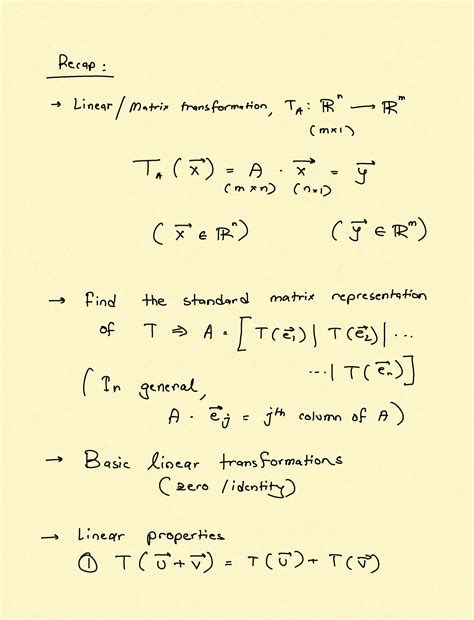 Recap:
→ Linear/Matrix transformation, T_A: ℝⁿ → ℝᵐ
(m×1)
T_A(x⃗) = A · x⃗ = y⃗
(m×n) (n×1)
(x⃗ ∈ ℝⁿ) (y⃗ ∈ ℝᵐ)
→ Find the standard matrix representation
of T ⇒ A = [T(e⃗₁)| T(e⃗₂)| ...
...| T(e⃗ₙ)]
(In general,
A · e⃗ⱼ = jᵗʰ column of A)
→ Basic linear transformations
(zero/identity)
→ Linear properties
① T(u⃗+v⃗) = T(u⃗)+ T(v⃗)